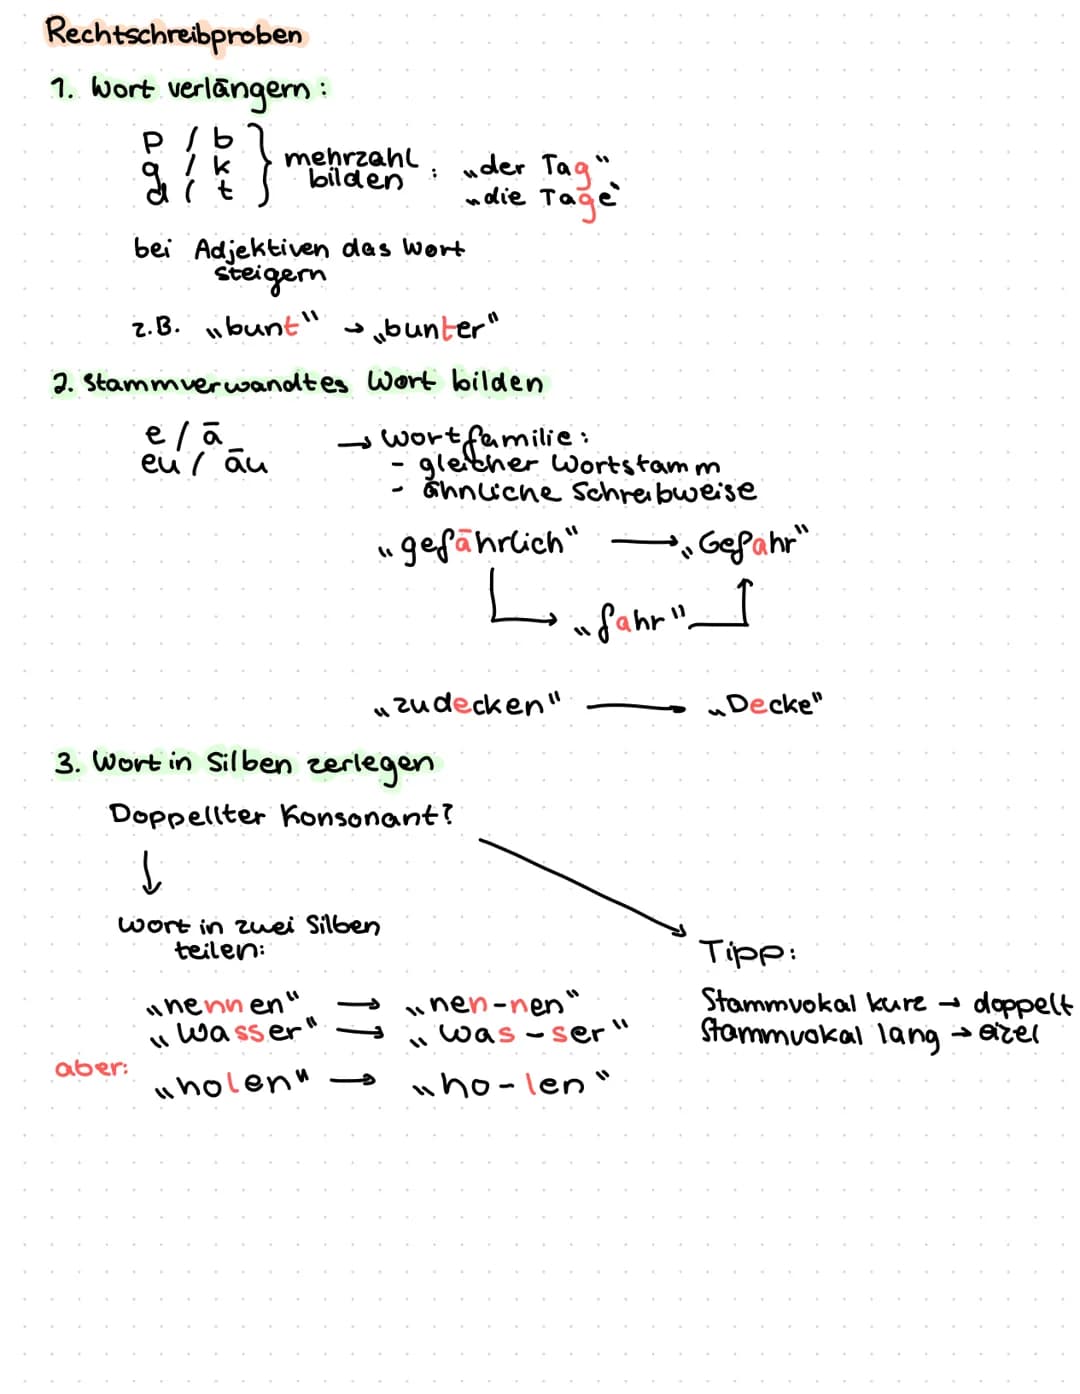 Rechtschreibproben
1. Wort verlängern:
p / b
g / k
d / t
mehrzahl
bilden :
„der Tag"
„die Tage"
bei Adjektiven das Wort
steigern
z.B. „bunt" → „bunter"
2. Stammverwandtes Wort bilden
e / ä
eu / äu
→ Wortfamilie:
- gleicher Wortstamm
- ähnliche Schreibweise
„gefährlich" → „Gefahr"
„fahr"
„zudecken" → „Decke"
3. Wort in Silben zerlegen
Doppellter Konsonant?
Wort in zwei Silben
teilen:
„nennen" → „nen-nen"
„Wasser" → „was-ser"
aber:
„holen" → „ho-len"
Tipp:
Stammvokal kurz → doppelt
Stammvokal lang → eizel